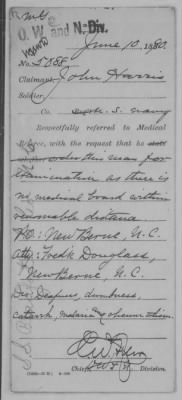 O. W. and N. Div.
June 10, 1890.
No.
Claimant, John Harris
Soldier,
Co. U. S. Navy
Respectfully referred to Medical
Referee, with the request that he
order this man for
examination as there is
no medical board within
reasonable distance
P.O.: New Berne, N. C.
Atty: Fredk Douglass,
New Berne, N. C.
Dis: Deafness, dumbness,
catarrh, malaria &
Chief, Division.